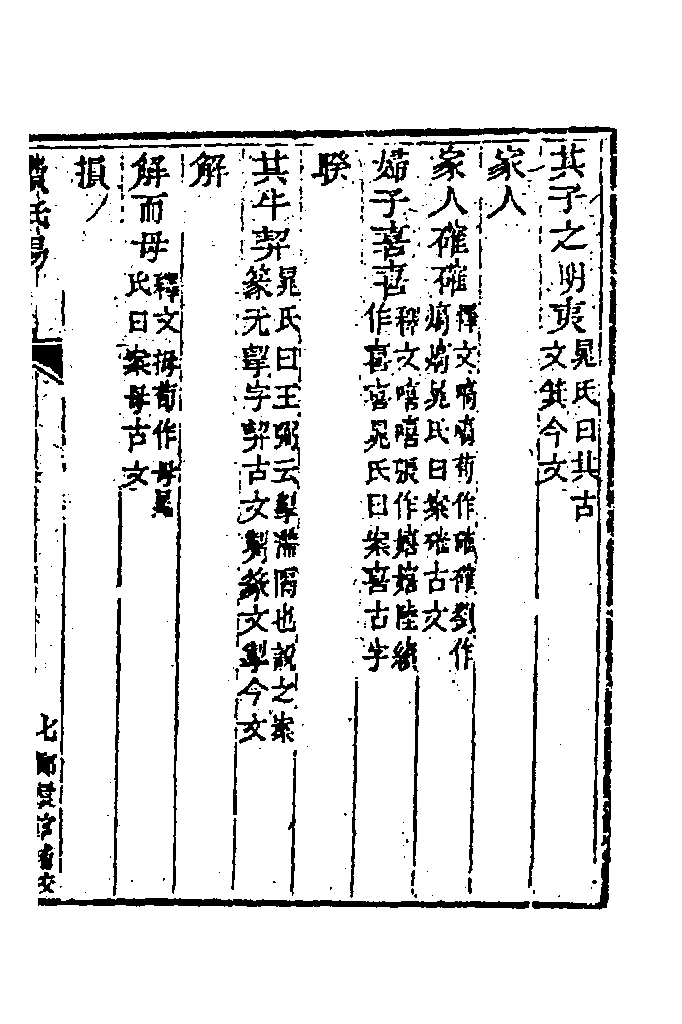 其子之明夷晁氏曰其古文箕今文
家人
家人確確釋文嗃嗃荀作確確劉作熇熇晁氏曰案確古文
婦子喜喜釋文嘻嘻張作嬉嬉陸績作喜喜晁氏曰案喜古字
睽
其牛契晁氏曰王弼云掣滯隔也說之案篆无掣字契古文觢篆文掣今文
解
解而母釋文拇荀作母晁氏曰案母古文
損
氏易
七